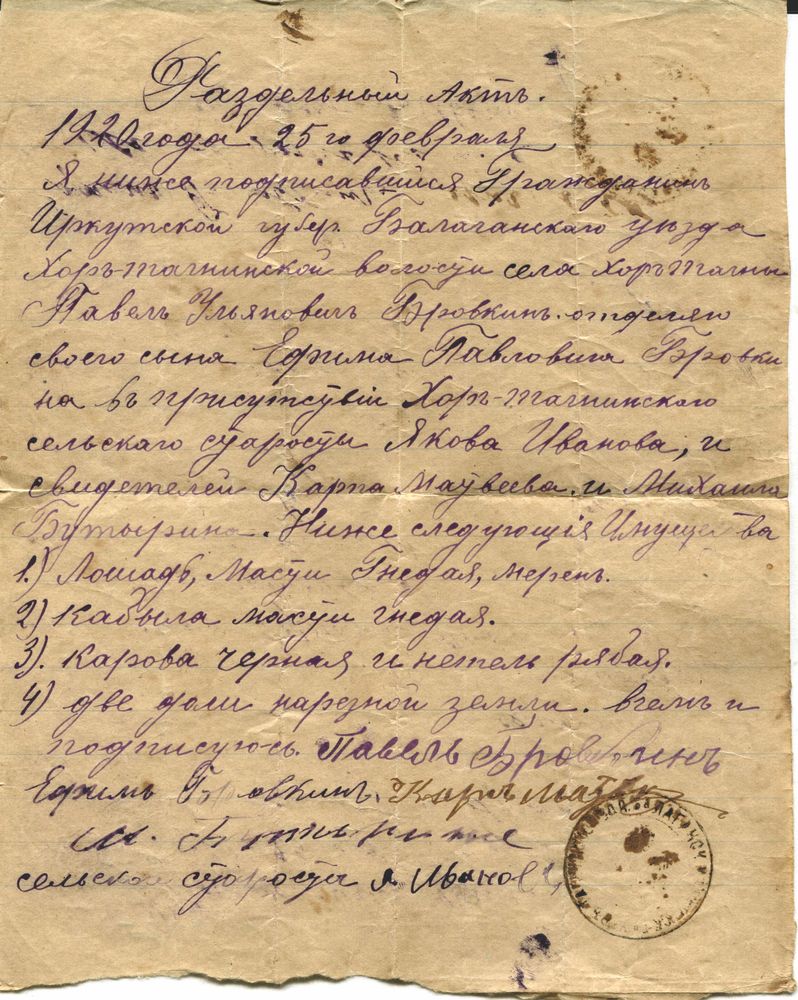 Раздельный Актъ.
1920 года 25 го февраля
Я ниже подписавшийся Гражданинъ
Иркутской губер. Балаганскаго уезда
Хоръ-тагнинской волости села Хоръ-Тагны
Павелъ Ульяновичъ Бровкинъ. отделяю
своего сына Ефима Павловича Бровки
на въ присутствіи Хоръ-тагнинскаго
сельскаго старосты Якова Иванова, и
свидетелей Карпа Матвеева. и Михаила
Бутырина. Ниже следующія Имущества
1.) Лошадь, Масти Гнедая, меренъ.
2) Кабыла масти гнедая.
3). Карова черная и нетель рябая.
4) две доли нарезной земли. вчемъ и
подписуюсь. Павелъ Бровкинъ
Ефимъ Бровкинъ. Карпъ
М.
сельской старосты Я Иванов